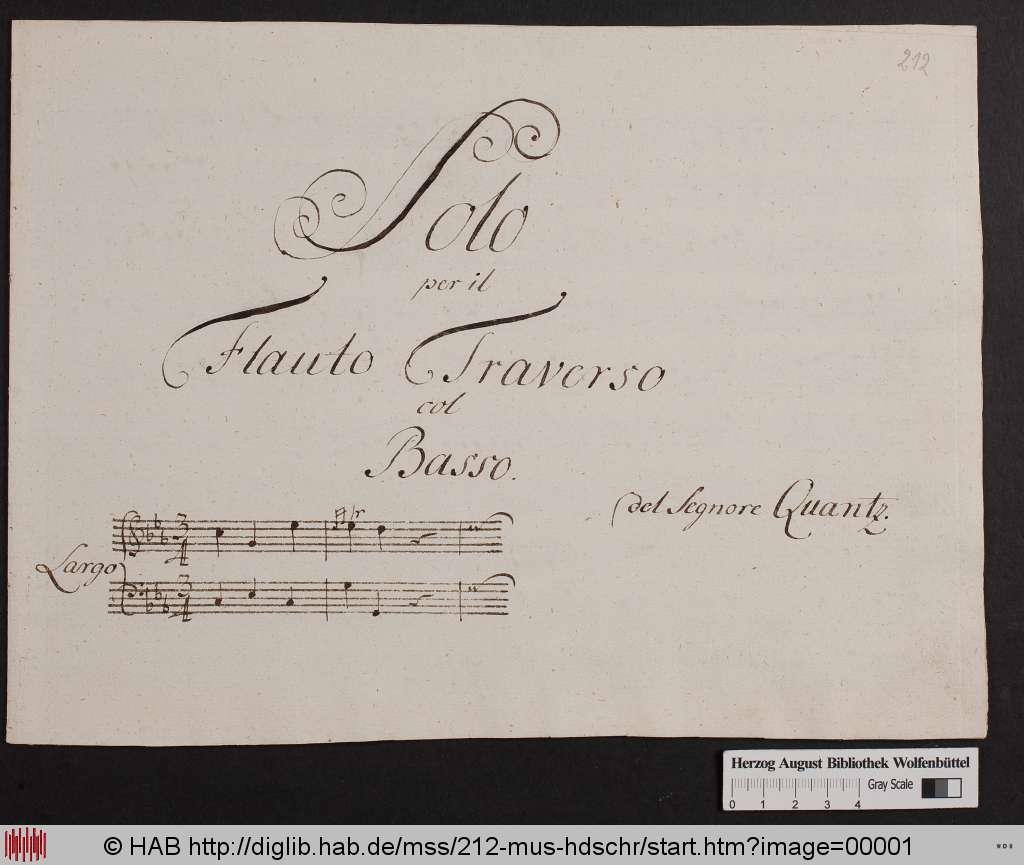 212
Solo
per il
Flauto Traverso
col
Basso.
del Segnore Quantz.
Largo
3/4
tr
3/4
Herzog August Bibliothek Wolfenbüttel
Gray Scale
0 1 2 3 4
© HAB http://diglib.hab.de/mss/212-mus-hdschr/start.htm?image=00001